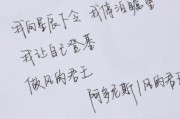 我向星辰下令 我停泊瞩望
我让自己登基
做风的君王
阿多尼斯/风的君王